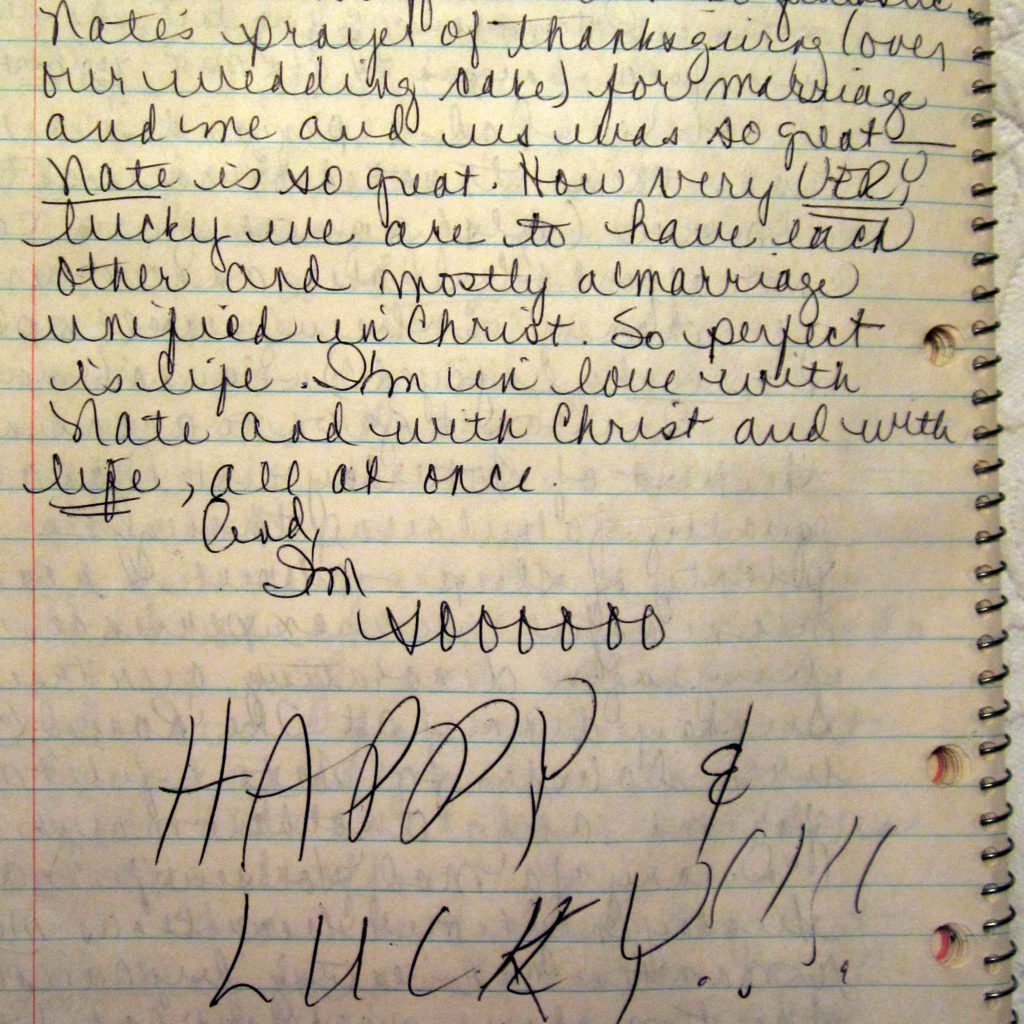 Nate's prayer of thanksgiving (over
our wedding cake) for marriage
and me and us was so great—
Nate is so great. How very VERY
lucky we are to have each
other and mostly a marriage
unified in Christ. So perfect
is life. I'm in love with
Nate and with Christ and with
life, all at once.
And,
I'm
sooooooo
HAPPY &
LUCKY!!!!!